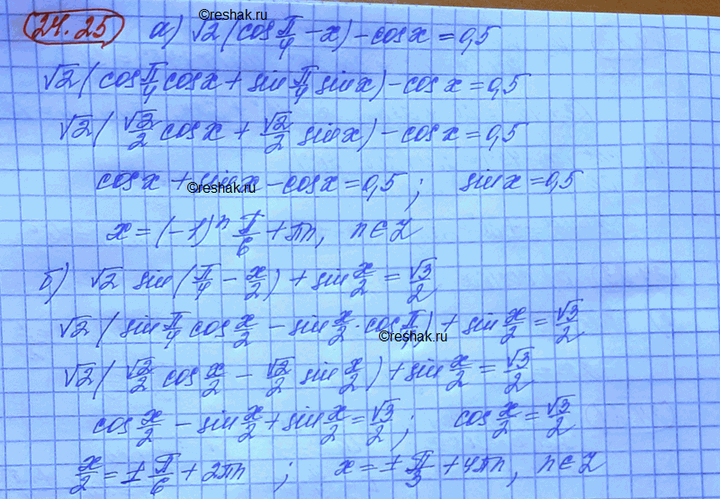 ©reshak.ru
24.25 а) √2(cos π/4 - x) - cos x = 0,5
√2(cos π/4 cos x + sin π/4 sin x) - cos x = 0,5
√2(√2/2 cos x + √2/2 sin x) - cos x = 0,5
cos x + sin x - cos x = 0,5; sin x = 0,5
©reshak.ru
x = (-1)ⁿ π/6 + πn, n∈Z
б) √2 sin(π/4 - x/2) + sin x/2 = √3/2
√2(sin π/4 cos x/2 - sin x/2 · cos π/4) + sin x/2 = √3/2
©reshak.ru
√2(√2/2 cos x/2 - √2/2 sin x/2) + sin x/2 = √3/2
cos x/2 - sin x/2 + sin x/2 = √3/2; cos x/2 = √3/2
x/2 = ± π/6 + 2πn; x = ± π/3 + 4πn, n∈Z